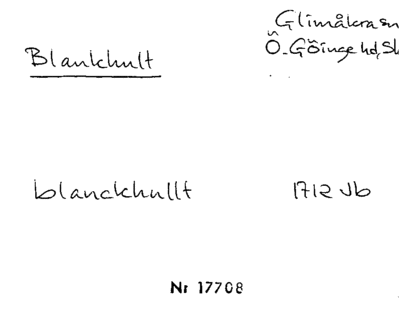 Glimåkra sn
Ö. Göinge hd, Sk
Blankhult
blanckhullt 1712 Jb
Nr 17708